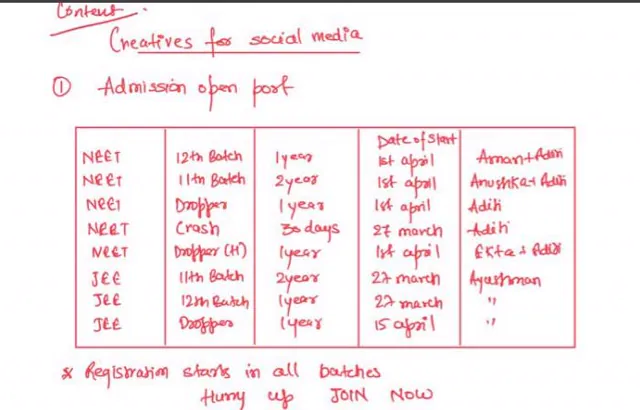 Content
Creatives for social media
① Admission open post
Date of Start
NEET 12th Batch 1 year 1st april Aman + Aditi
NEET 11th Batch 2 year 1st april Anushka + Aditi
NEET Dropper 1 year 1st april Aditi
NEET Crash 30 days 27 march Aditi
NEET Dropper (H) 1 year 1st april Ekta + Aditi
JEE 11th Batch 2 year 27 march Ayushman
JEE 12th Batch 1 year 27 march "
JEE Dropper 1 year 15 april "
* Registration starts in all batches
Hurry up JOIN NOW